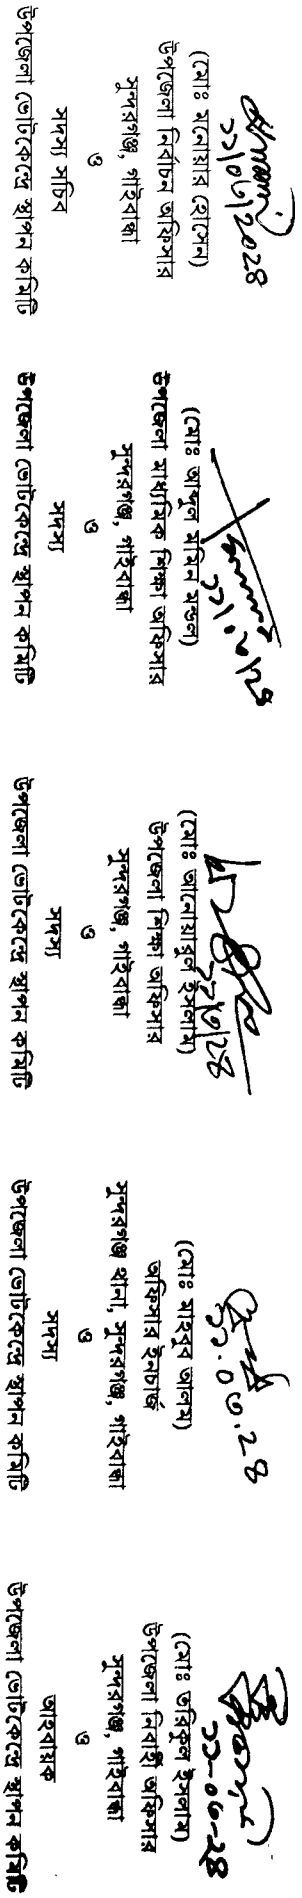 ১১/০৬/২০২৪
(মোঃ মনোয়ার হোসেন)
উপজেলা নির্বাচন অফিসার
সুন্দরগঞ্জ, গাইবান্ধা
ও
সদস্য সচিব
উপজেলা ভোটকেন্দ্র স্থাপন কমিটি
(মোঃ আব্দুল মমিন মন্ডল)
উপজেলা মাধ্যমিক শিক্ষা অফিসার
সুন্দরগঞ্জ, গাইবান্ধা
ও
সদস্য
উপজেলা ভোটকেন্দ্র স্থাপন কমিটি
(মোঃ আনোয়ারুল ইসলাম)
উপজেলা শিক্ষা অফিসার
সুন্দরগঞ্জ, গাইবান্ধা
ও
সদস্য
উপজেলা ভোটকেন্দ্র স্থাপন কমিটি
১১.০৬.২৪
(মোঃ মাহবুব আলম)
অফিসার ইনচার্জ
সুন্দরগঞ্জ থানা, সুন্দরগঞ্জ, গাইবান্ধা
ও
সদস্য
উপজেলা ভোটকেন্দ্র স্থাপন কমিটি
১১-০৬-২৪
(মোঃ তরিকুল ইসলাম)
উপজেলা নির্বাহী অফিসার
সুন্দরগঞ্জ, গাইবান্ধা
ও
আহবায়ক
উপজেলা ভোটকেন্দ্র স্থাপন কমিটি